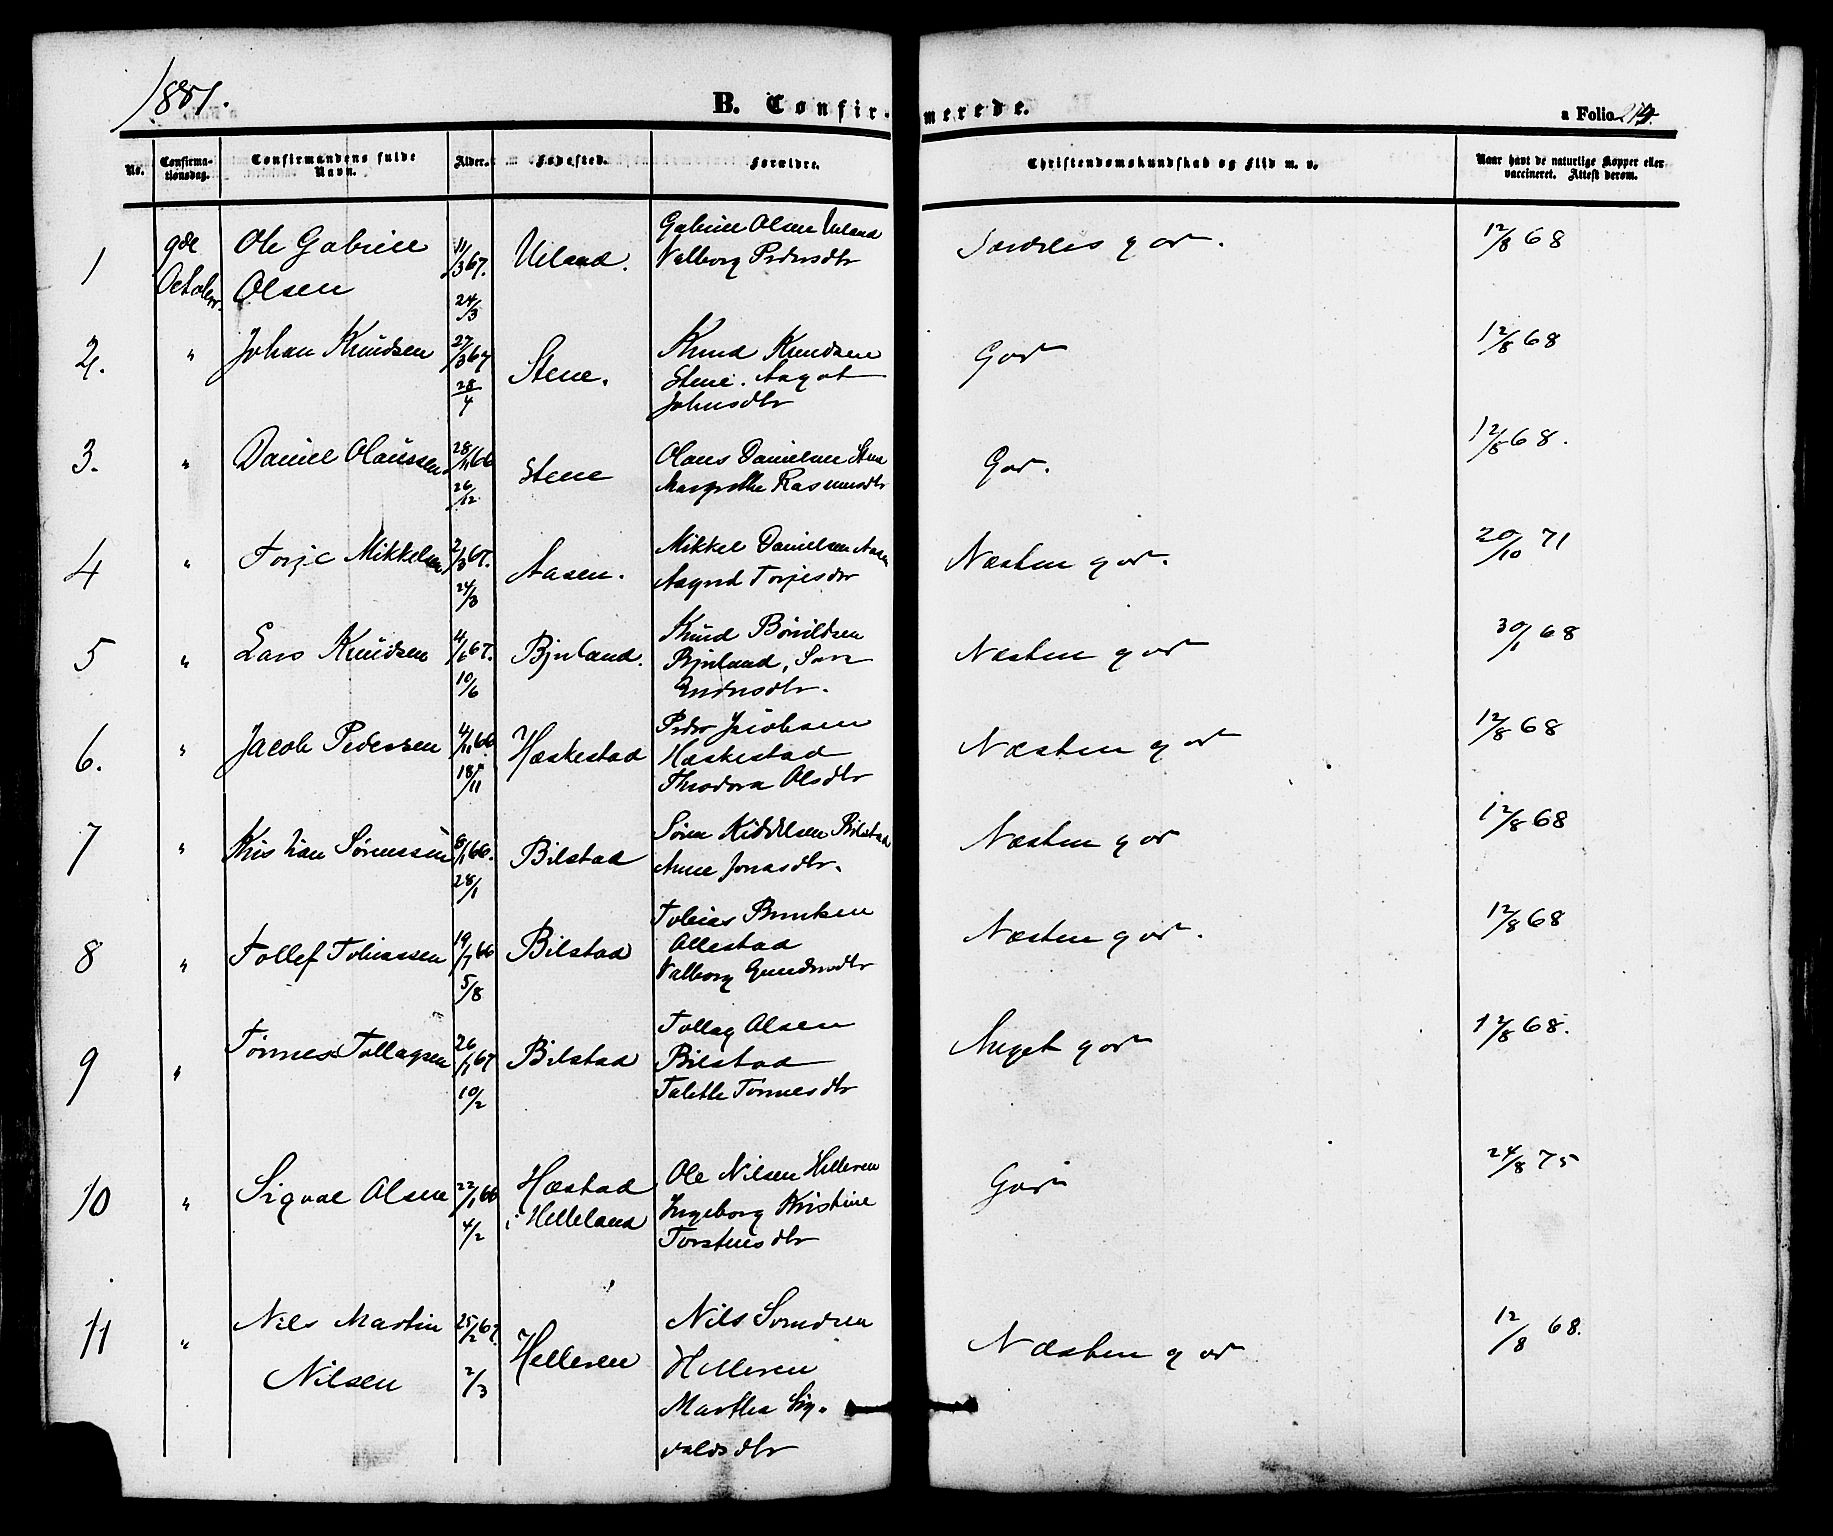 1881.
B. Confirmerede.
a Folio
No.
Confirmationsdag.
Confirmandens fulde Navn.
Alder.
Fødested.
Forældre.
Christendomskundskab og Flid m. v.
Naar havt de naturlige Kopper eller vaccineret. Attest derom.
1 9de October. Ole Gabriel Olsen 11/3 67. 24/3 Ueland. Gabriel Olsen Ueland Valborg Pedersdtr Særdeles god. 12/8 68
2. " Johan Knudsen 27/3 67 28/4 Stene. Knud Knudsen Stene. Aagot Johnsdtr God 12/8 68
3. " Daniel Olaussen 28/11 66 26/12 Stene Olaus Danielsen Stene Margrethe Rasmusdtr God. 12/8 68.
4 " Torje Mikkelsen 2/3 67. 24/3 Aasen. Mikkel Danielsen Aasen Torjesdtr Næsten god. 20/10 71
5 " Lars Knudsen 4/6 67. 10/6 Bjuland. Knud Bjuland, Endresdtr. Næsten god 30/1 68
6. " Jacob Pedersen 4/11 66 18/11 Hæskestad Peder Jacobsen Hæskestad Theodora Olsdtr Næsten god 12/8 68
7 " Kristian Sørenssen 8/1 66. 28/1 Bilstad Søren Kiddelsen Bilstad Anne Jonasdtr. Næsten god 12/8 68
8 " Tollef Tobiassen 19/7 66 5/8 Bilstad Tobias Allestad Valborg Næsten god. 12/8 68
9 " Tønnes Tollagsen 26/1 67 10/2 Bilstad Tollag Olsen Bilstad Talette Tønnesdtr Meget god 12/8 68.
10 " Sigval Olsen 22/1 66 4/2 Hæstad i Helleland Ole Nilsen Helleren Ingeborg Kristine Torstensdtr God 24/8 75
11 " Nils Martin Nilsen 25/2 67. 2/3 Helleren Nils Helleren Martha Sigvaldsdtr Næsten god 12/8 68.